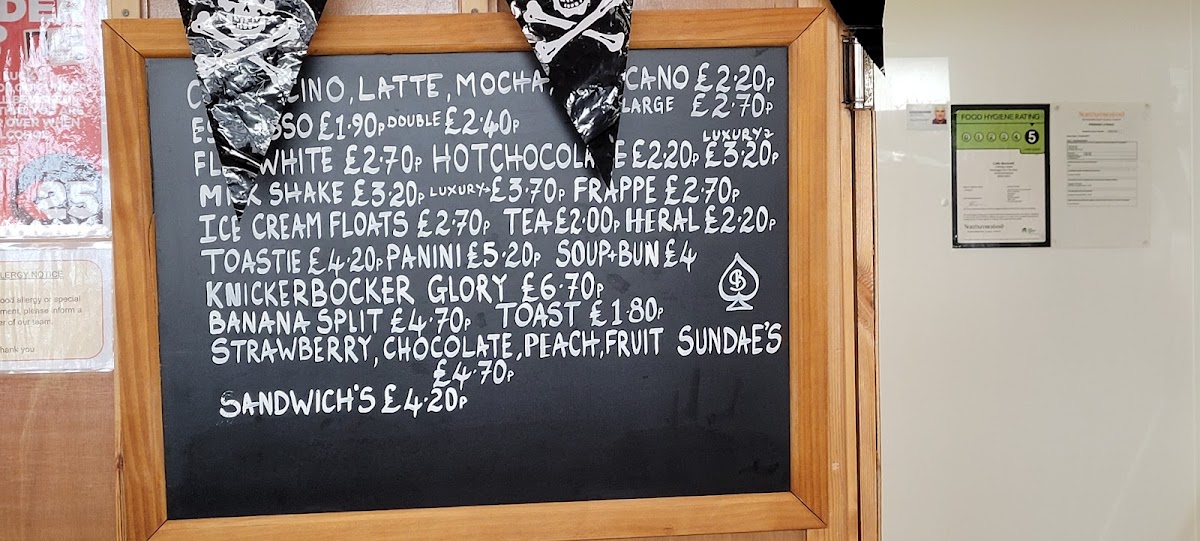 CINO, LATTE, MOCHA, CANO £2.20p
LARGE £2.70p
ES SSO £1.90p DOUBLE £2.40p
LUXURY
FL WHITE £2.70p HOTCHOCOLA E £2.20p £3.20p
MILK SHAKE £3.20p LUXURY £3.70p FRAPPE £2.70p
ICE CREAM FLOATS £2.70p TEA £2.00p HERAL £2.20p
TOASTIE £4.20p PANINI £5.20p SOUP+BUN £4
KNICKERBOCKER GLORY £6.70p
BANANA SPLIT £4.70p TOAST £1.80p
STRAWBERRY, CHOCOLATE, PEACH, FRUIT SUNDAE'S
£4.70p
SANDWICH'S £4.20p
DER
25
LERGY NOTICE
ood allergy or special
ment, please inform a
er of our team.
hank you
FOOD HYGIENE RATING
5
Northumberland
Northumberland